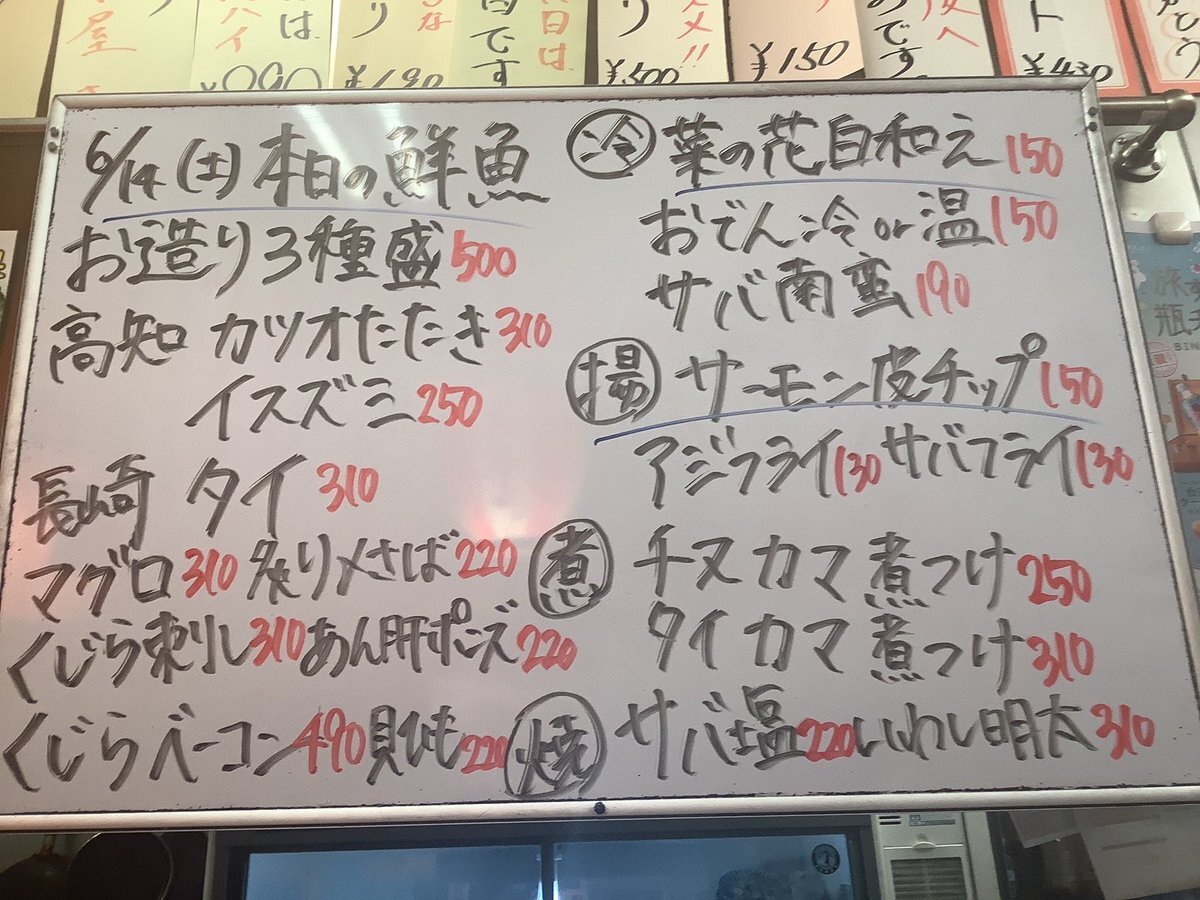 ¥150
¥500
¥190
¥430
6/14(土)本日の鮮魚
お造り3種盛500
高知 カツオたたき310
イスズミ250
長崎 タイ310
マグロ310 炙り〆さば220
くじら刺し310 あん肝ポンズ220
くじらベーコン490 貝ひも220
冷 菜の花白和え150
おでん冷or温150
サバ南蛮190
揚 サーモン皮チップ150
アジフライ130 サバフライ130
煮 チヌカマ煮つけ250
タイカマ煮つけ310
焼 サバ塩220 いわし明太310